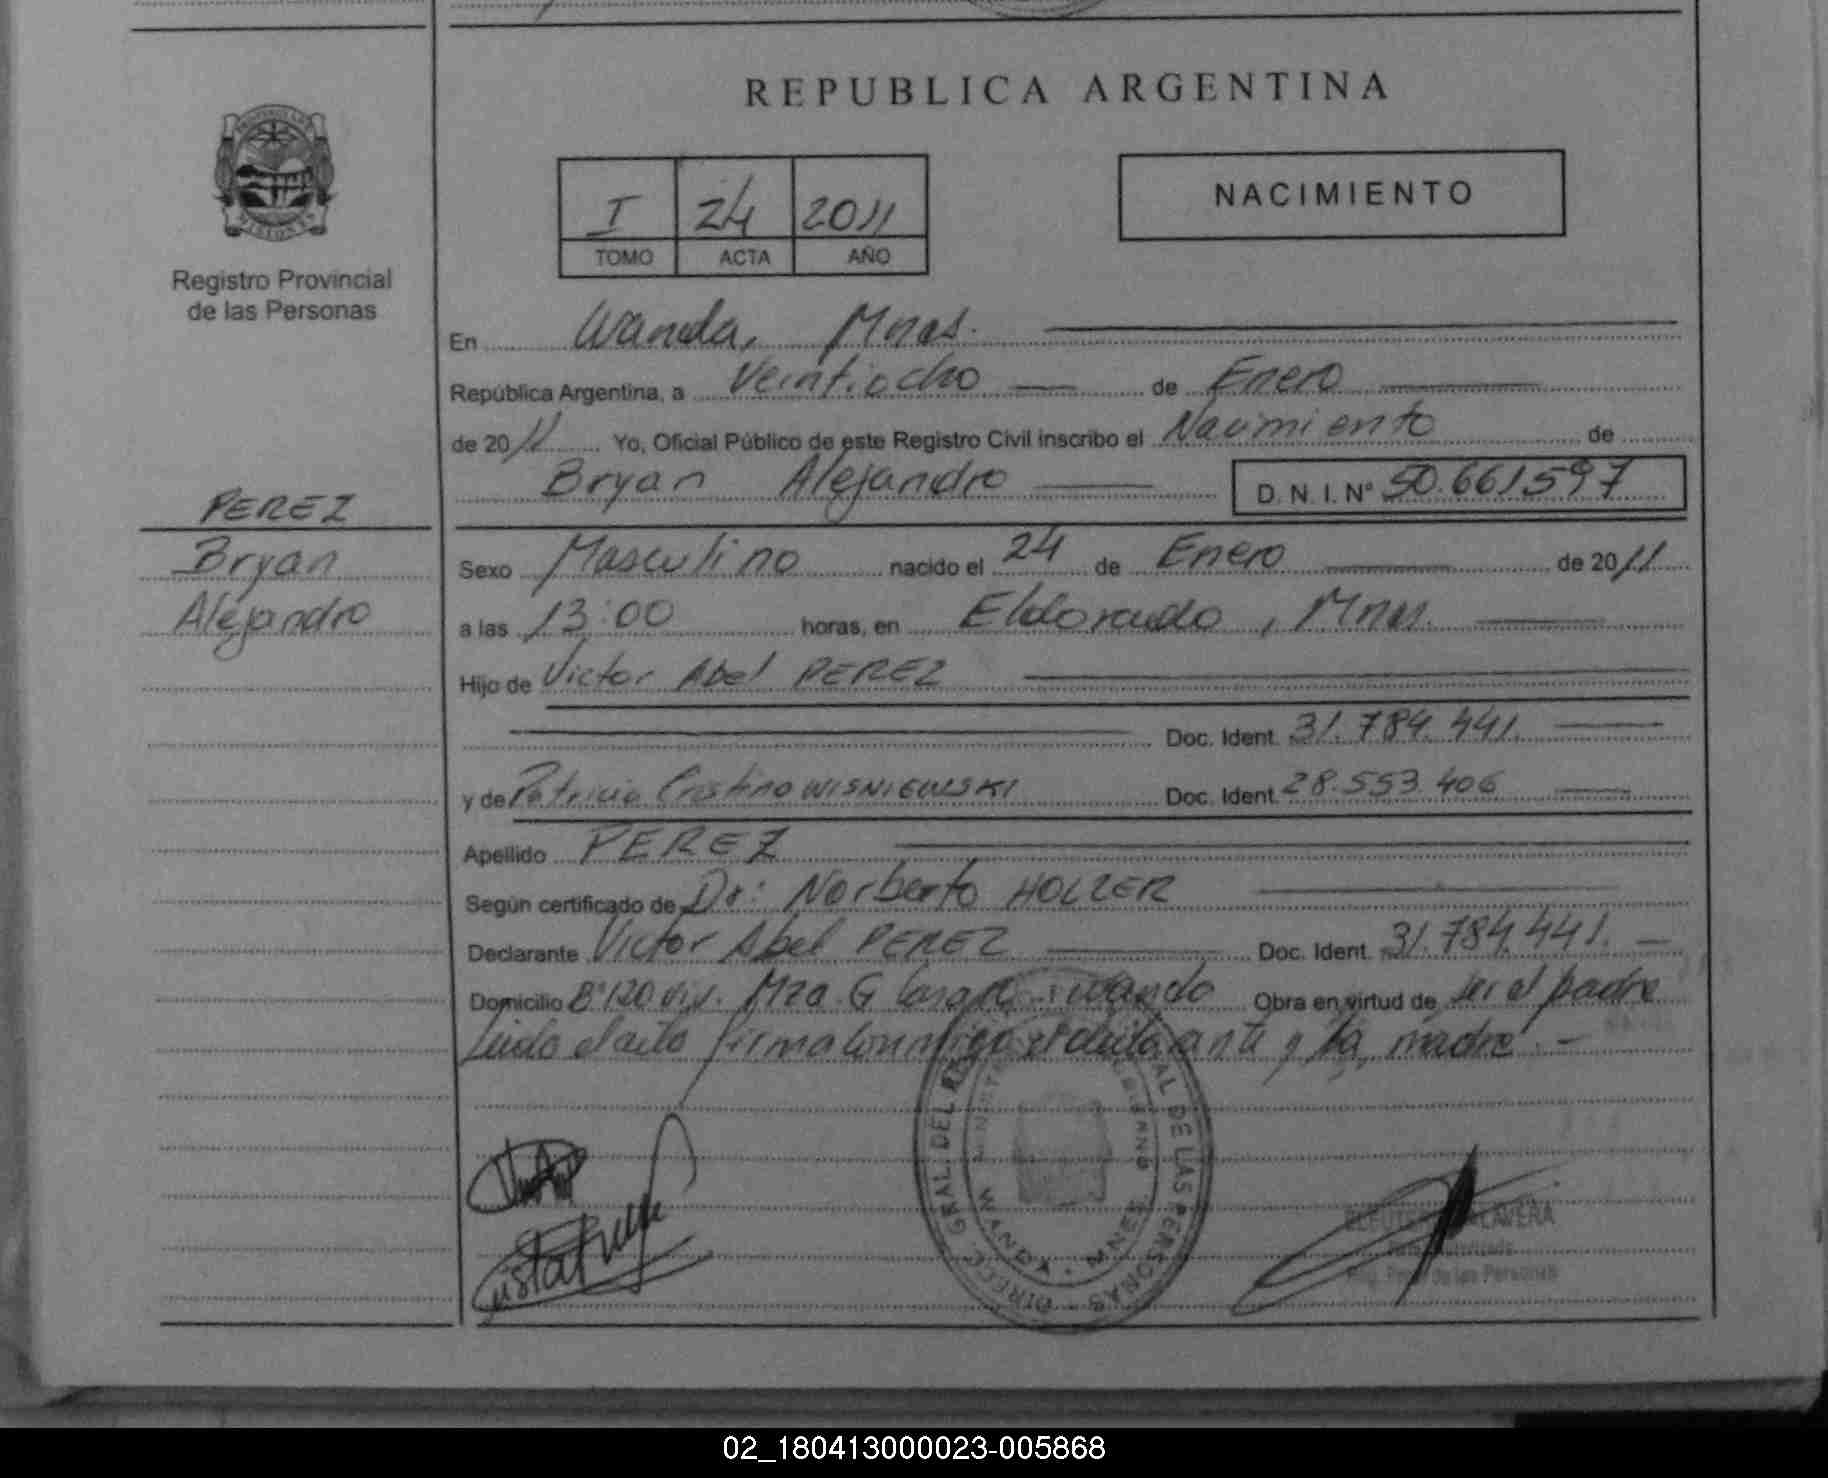 REPUBLICA ARGENTINA
PROVINCIA DE
MISIONES
Registro Provincial
de las Personas
I 24 2011
TOMO ACTA AÑO
NACIMIENTO
En Wanda, Mnes.
República Argentina, a Veintiocho de Enero
de 2011 Yo, Oficial Público de este Registro Civil inscribo el Nacimiento de
Bryan Alejandro D. N. I. Nº 50.661597
PEREZ
Bryan
Alejandro
Sexo Masculino nacido el 24 de Enero de 2011
a las 13:00 horas, en Eldorado, Mnes.
Hijo de Victor Abel PEREZ
Doc. Ident. 31.784.441.
y de Patricia Cristina WISNIEWSKI Doc. Ident. 28.553.406
Apellido PEREZ
Según certificado de Dr: Norberto HOLZER
Declarante Victor Abel PEREZ Doc. Ident. 31.784.441.
Domicilio Bº 120 viv. Mza G Wanda Obra en virtud de ser el padre
Leido el acta firma conmigo el declarante y la madre.-
DIREC. GRAL. DEL REG. PROVINCIAL DE LAS PERSONAS
WANDA - MNES.
Reg. Prov. de las Personas
02_180413000023-005868